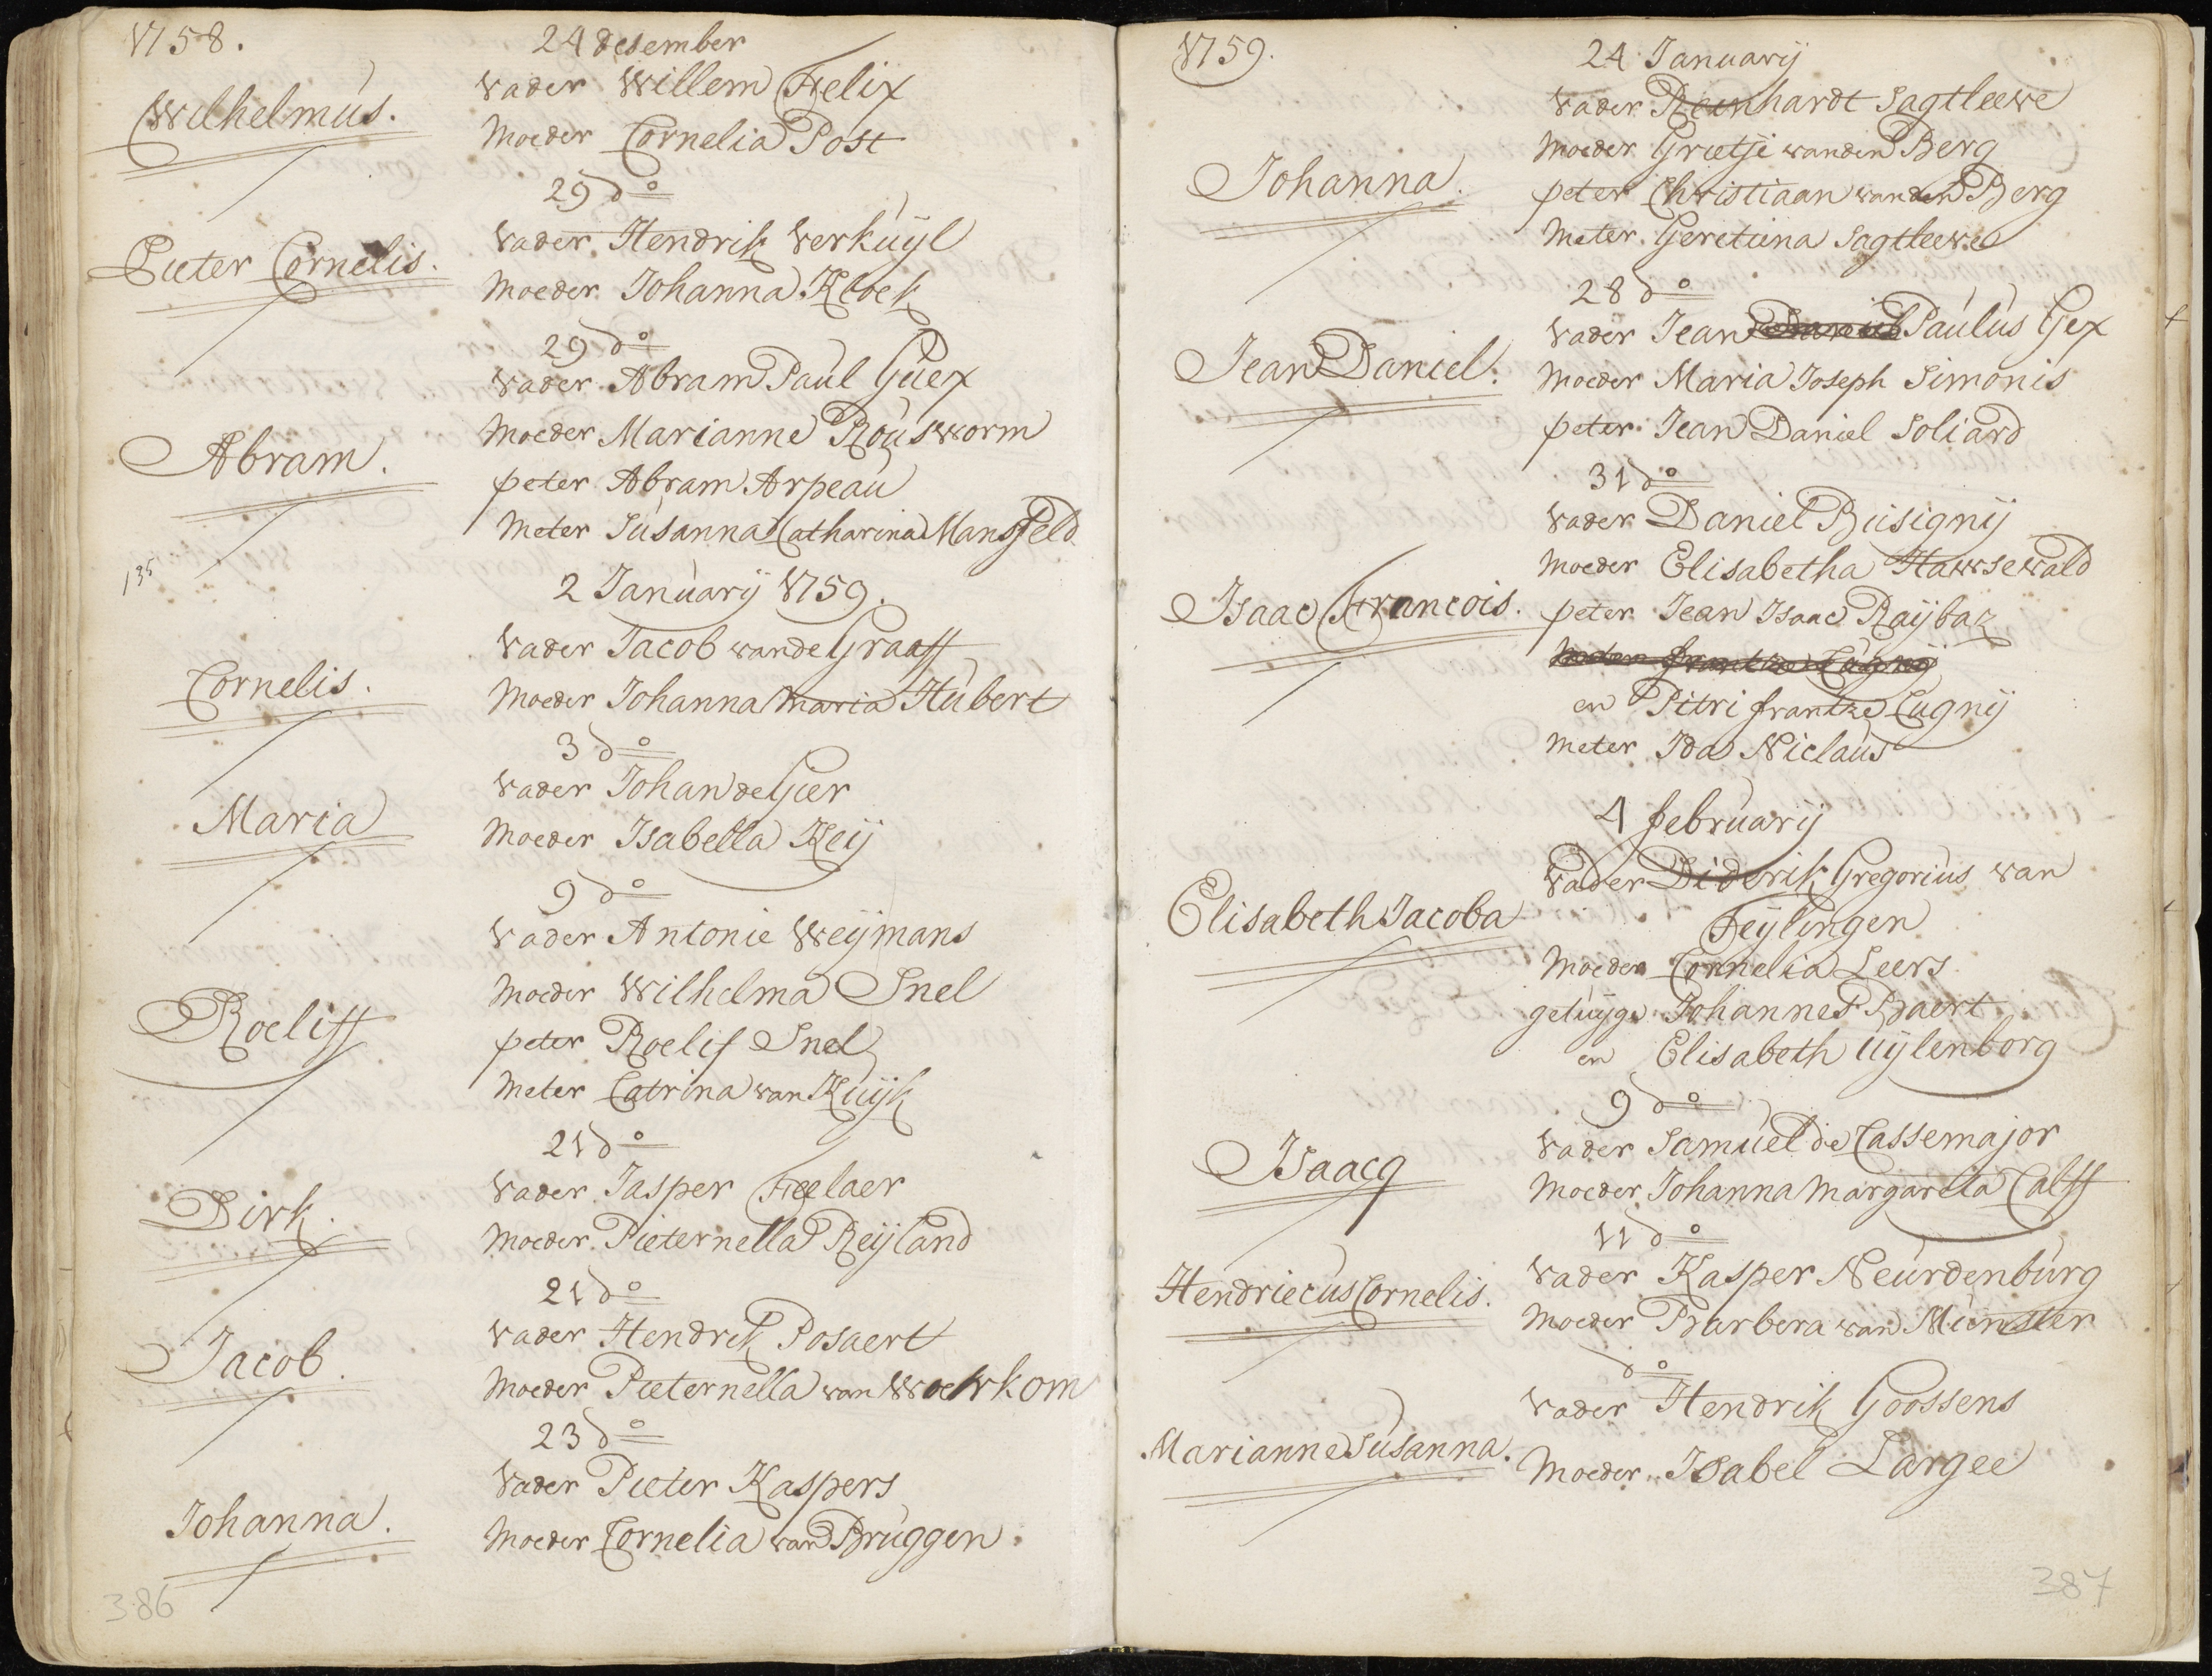 1758.
24 desember
Wilhelmus.
Vader Willem Felix
Moeder Cornelia Post
29 do
Pieter Cornelis.
Vader Hendrik Verkuijl
Moeder Johanna Kloek
29 do
Vader Abram Paul Guex
Abram.
Moeder Marianne Rousworm
peter Abram Arpeau
Meter Susanna Catharina Mansfeld
135
2 Januarij 1759.
Vader Jacob vande Graaff
Cornelis.
Moeder Johanna Maria Hubert
3 do
Vader Johan de Gier
Maria
Moeder Isabella Keij
9 do
Vader Antonie Weijmans
Moeder Wilhelma Snel
Roeliff
peter Roelif Snel
Meter Catrina van Kuijk
21 do
Vader Jasper Feelaer
Dirk.
Moeder Pieternella Reijland
21 do
Vader Hendrik Posaert
Jacob.
Moeder Pieternella van Woerkom
23 do
Vader Pieter Kaspers
Johanna.
Moeder Cornelia van Bruggen.
386
1759.
24 Januarij
Vader Reinhardt Sagtleeve
Moeder Grietje vanden Berg
Johanna.
peter Christiaan vanden Berg
Meter Geretiina Sagtleeve
28 do
Vader Jean Daniel Paulus Gex
Jean Daniel.
Moeder Maria Joseph Simonis
peter Jean Daniel Soliard
31 do
Vader Daniel Busignij
Moeder Elisabetha Hawsewald
Isaac Francois.
peter Jean Isaac Raijbaz
en Pitri frantze Cugnij
Meter Ida Niclaus
4 februarij
Vader Diderik Gregorius van
Teijlingen
Elisabeth Jacoba
Moeder Cornelia Leers
getuijge Johannes Baert
en Elisabeth Uijlenborg
9 do
Vader Samuel de Cassemajor
Isaacq
Moeder Johanna Margareta Calff
11 do
Vader Kasper Neurdenburg
Hendriecus Cornelis.
Moeder Barbera van Munster
do
Vader Hendrik Goossens
Marianne Susanna.
Moeder Isabel Largee
387